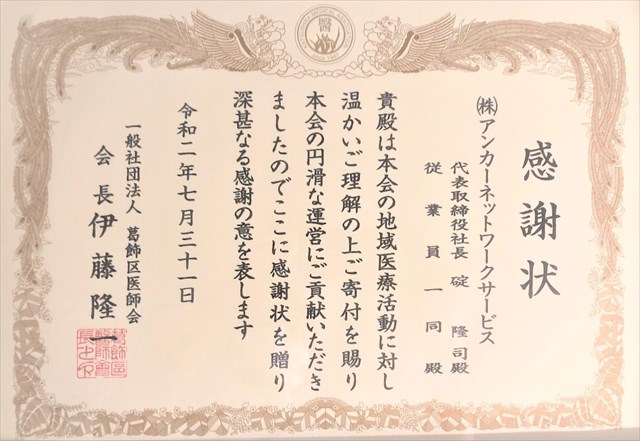 醫
感謝状
(株)アンカーネットワークサービス
代表取締役社長 碇 隆司殿
従業員一同殿
貴殿は本会の地域医療活動に対し
温かいご理解の上ご寄付を賜り
本会の円滑な運営にご貢献いただき
ましたのでここに感謝状を贈り
深甚なる感謝の意を表します
令和二年七月三十一日
一般社団法人 葛飾区医師会
会長 伊藤隆一